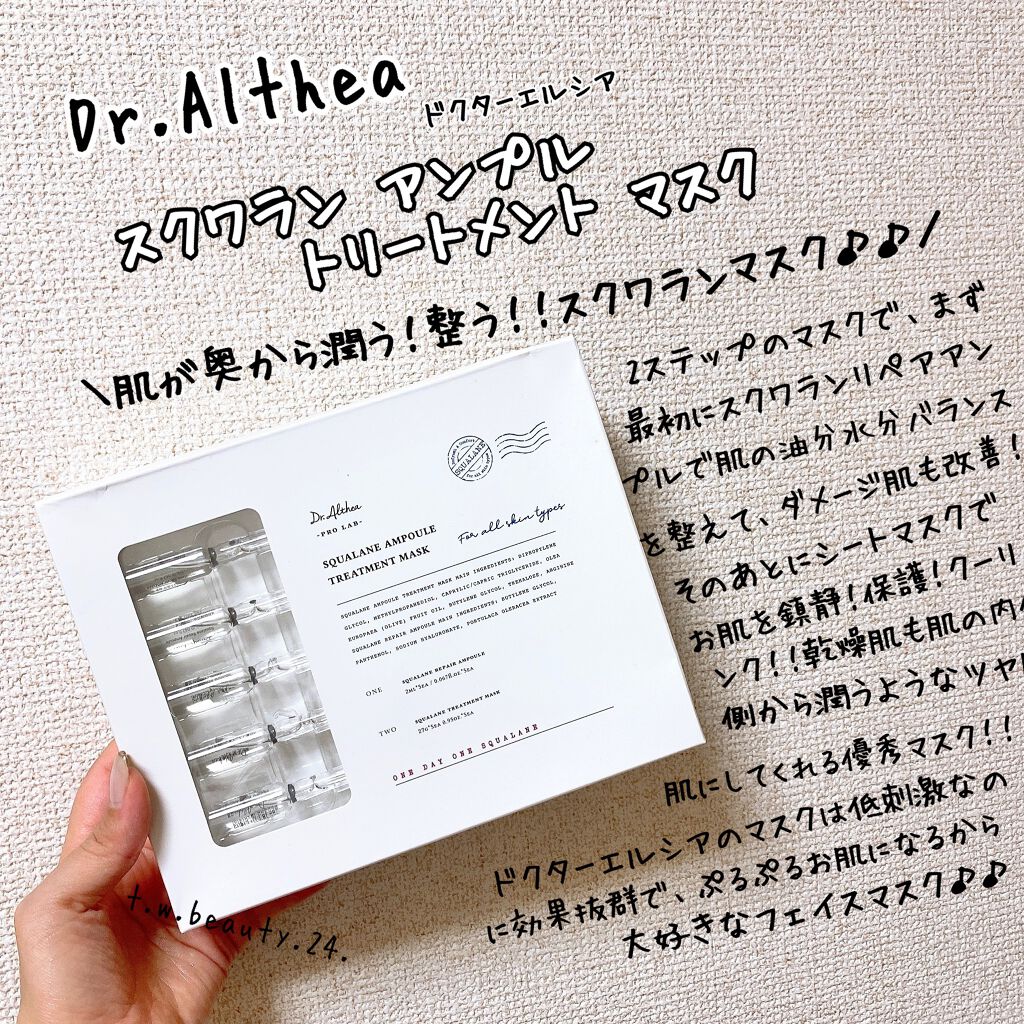 Dr.Althea
ドクターエルシア
スクワラン アンプル
トリートメント マスク
\肌が奥から潤う!整う!!スクワランマスク♪♪/
2ステップのマスクで、まず
最初にスクワランリペアアン
プルで肌の油分水分バランス
を整えて、ダメージ肌も改善!
そのあとにシートマスクで
お肌を鎮静!保護!クーリ
ング!!乾燥肌も肌の内
側から潤うようなツヤ
肌にしてくれる優秀マスク!!
ドクターエルシアのマスクは低刺激なの
に効果抜群で、ぷるぷるお肌になるから
大好きなフェイスマスク♪♪
SQUALANE
Dr.Althea
-PRO LAB-
SQUALANE AMPOULE
TREATMENT MASK
For all skin types
SQUALANE AMPOULE TREATMENT MASK MAIN INGREDIENTS; DIPROPYLENE
GLYCOL, METHYLPROPANEDIOL, CAPRYLIC/CAPRIC TRIGLYCERIDE, OLEA
EUROPAEA (OLIVE) FRUIT OIL, BUTYLENE GLYCOL, TREHALOSE, ARGININE
SQUALANE REPAIR AMPOULE MAIN INGREDIENTS; BUTYLENE GLYCOL,
PANTHENOL, SODIUM HYALURONATE, PORTULACA OLERACEA EXTRACT
ONE
SQUALANE REPAIR AMPOULE
2ml*5EA / 0.067fl.oz*5EA
TWO
SQUALANE TREATMENT MASK
27g*5EA 0.95oz.*5EA
ONE DAY ONE SQUALANE
t.w.beauty.24.